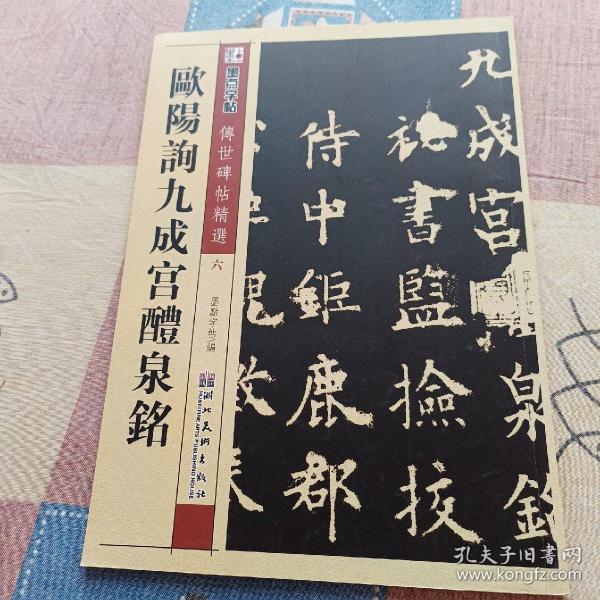 歐陽詢九成宮醴泉銘
墨点字帖
傳世碑帖精選
六
墨點字帖 編
湖北美术出版社
HUBEI FINE ARTS PUBLISHING HOUSE
九成宮醴泉銘
祕書監撿挍
侍中鉅鹿郡
孔夫子旧书网
www.kongfz.com